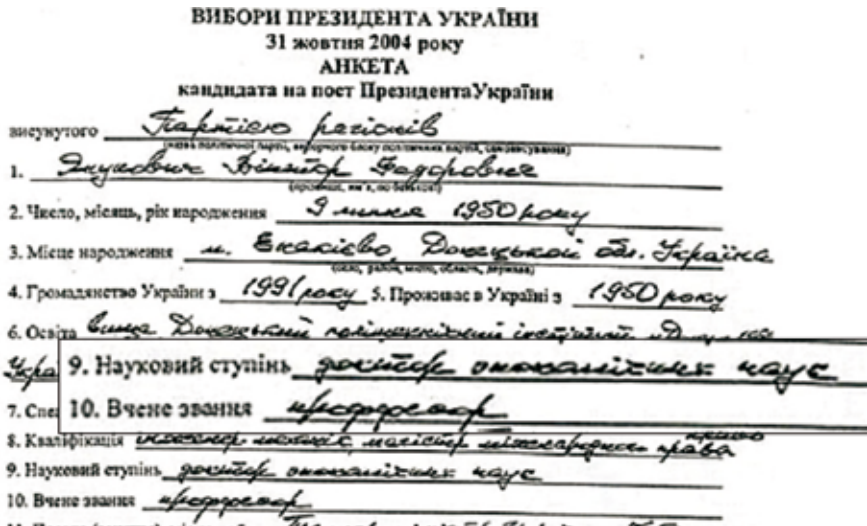 ВИБОРИ ПРЕЗИДЕНТА УКРАЇНИ
31 жовтня 2004 року
АНКЕТА
кандидата на пост ПрезидентаУкраїни
висунутого Партією регіонів
(назва політичної партії, виборчого блоку політичних партій, самовисування)
1. Янукович Віктор Федорович
(прізвище, ім'я, по батькові)
2. Число, місяць, рік народження 9 липня 1950 року
3. Місце народження м. Єнакієво, Донецької обл. Україна
(село, район, місто, область, держава)
4. Громадянство України з 1991 року 5. Проживає в Україні з 1950 року
6. Освіта вища Донецький політехнічний інститут
Укра
9. Науковий ступінь доктор економічних наук
7. Спе
10. Вчене звання проффесор
8. Кваліфікація інженер механік, магістр міжнародного права
9. Науковий ступінь доктор економічних наук
10. Вчене звання проффесор